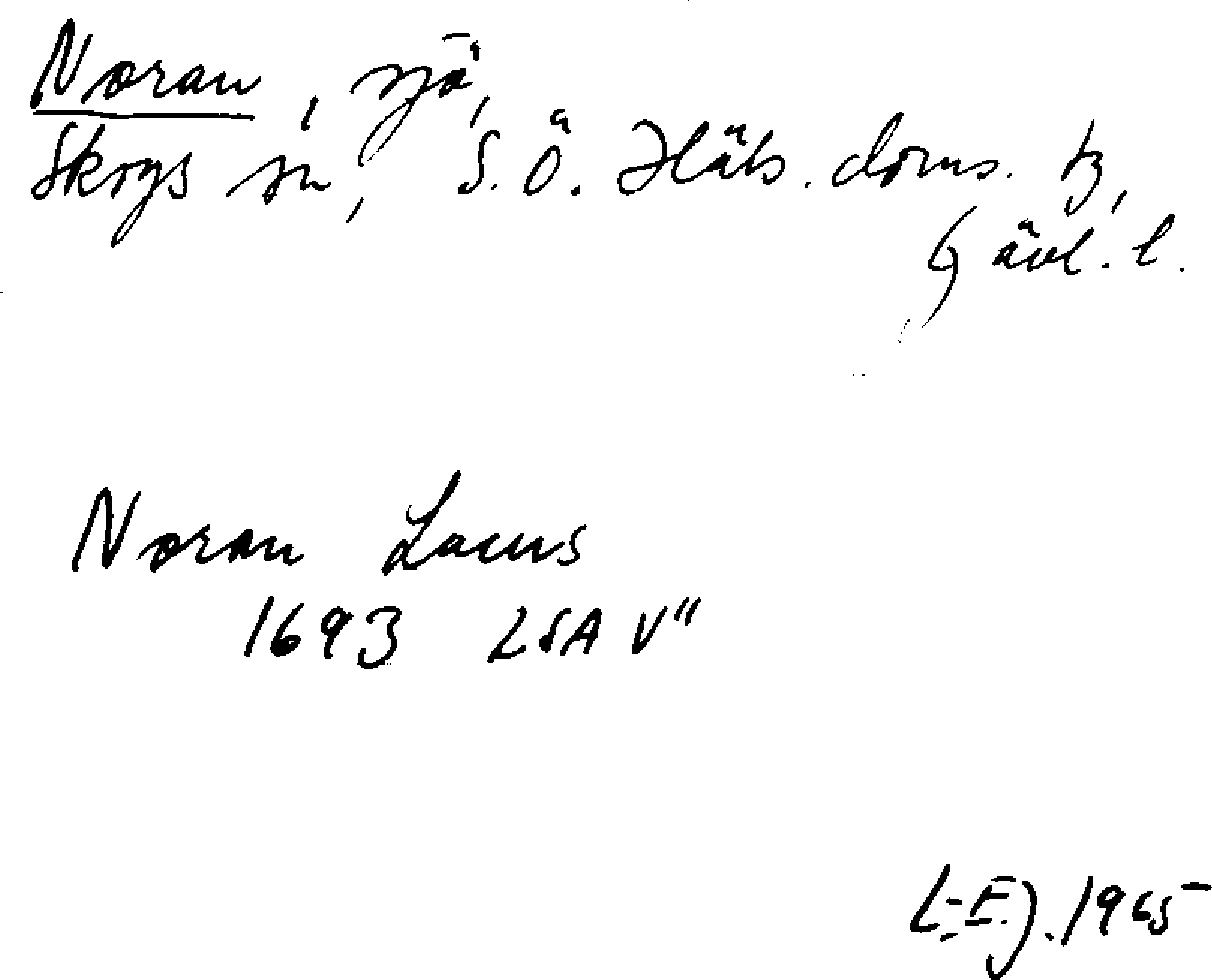 Noran, sjö,
Skogs sn, S. Ö. Häls. doms. hz,
Gävl. l.
Noran Lacus
1693 LSA V"
L-E.J. 1965